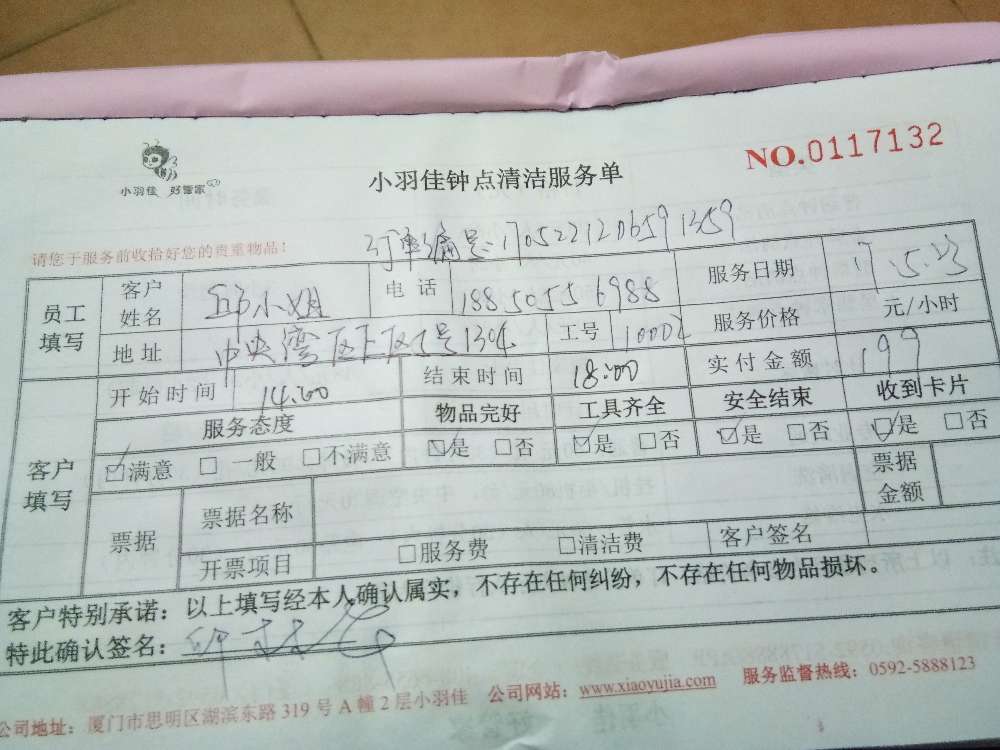 小羽佳 好管家
小羽佳钟点清洁服务单
NO.0117132
请您于服务前收拾好您的贵重物品!
订单编号:170522120659 1359
员工填写 客户姓名 邱小姐 电话 18850556988 服务日期 17.5.23
地址 中央湾区下区5号1304 工号 服务价格 元/小时
开始时间 14:00 结束时间 18:00 实付金额 199
客户填写 服务态度 物品完好 工具齐全 安全结束 收到卡片
☑满意 □一般 □不满意 ☑是 □否 ☑是 □否 ☑是 □否 ☑是 □否
票据 票据名称 票据金额
开票项目 □服务费 □清洁费 客户签名
客户特别承诺：以上填写经本人确认属实，不存在任何纠纷，不存在任何物品损坏。
特此确认签名：
公司地址：厦门市思明区湖滨东路 319 号 A 幢 2 层小羽佳 公司网站：www.xiaoyujia.com 服务监督热线：0592-5888123